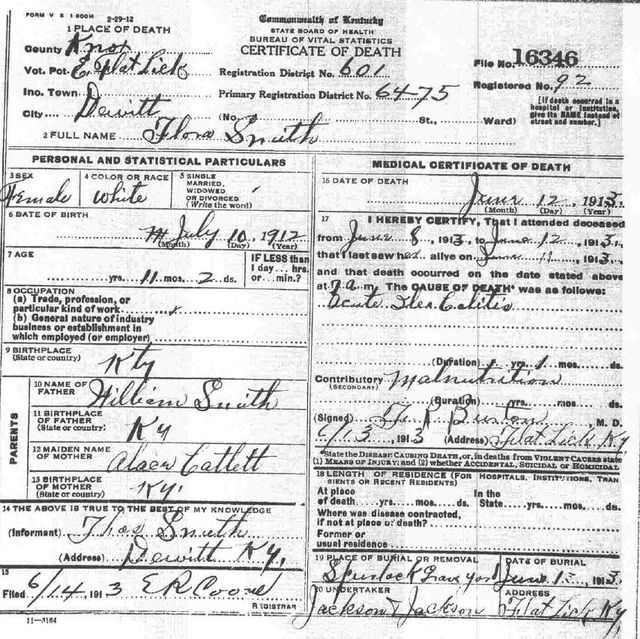 FORM V S 1-500M 2-29-12
1 PLACE OF DEATH
County Knox
Vot. Pct. E Flat Lick
Ino. Town
City Dewitt
Commonwealth of Kentucky
STATE BOARD OF HEALTH
BUREAU OF VITAL STATISTICS
CERTIFICATE OF DEATH
Registration District No. 601
Primary Registration District No. 6475
(No. St., Ward)
File No. 16346
Registered No. 92
[If death occurred in a hospital or institution, give its NAME instead of street and number.]
2 FULL NAME Flora Smith
PERSONAL AND STATISTICAL PARTICULARS
3 SEX
Female
4 COLOR OR RACE
White
5 SINGLE
MARRIED,
WIDOWED
OR DIVORCED
(Write the word)
6 DATE OF BIRTH
July 10, 1912
(Month) (Day) (Year)
7 AGE
yrs. 11 mos. 2 ds.
IF LESS than
1 day... hrs.
or... min.?
8 OCCUPATION
(a) Trade, profession, or
particular kind of work x
(b) General nature of industry
business or establishment in
which employed (or employer)
9 BIRTHPLACE
(State or country) Kty
PARENTS
10 NAME OF
FATHER William Smith
11 BIRTHPLACE
OF FATHER
(State or country) Ky
12 MAIDEN NAME
OF MOTHER Catlett
13 BIRTHPLACE
OF MOTHER
(State or country) Ky.
14 THE ABOVE IS TRUE TO THE BEST OF MY KNOWLEDGE
(Informant) Thos Smith
(Address) Dewitt Ky.
15
Filed 6/14, 1913 E R
REGISTRAR
11-3184
MEDICAL CERTIFICATE OF DEATH
16 DATE OF DEATH
June 12, 1913.
(Month) (Day) (Year)
17 I HEREBY CERTIFY, That I attended deceased
from June 8, 1913, to June 12, 1913.
that I last saw her alive on June 11, 1913,
and that death occurred on the date stated above
at 7 a m. The CAUSE OF DEATH* was as follows:
Acute Ileo Colitis
(Duration) yrs. 1 mos. ds.
Contributory Malnutrition
(SECONDARY)
(Duration) yrs. mos. ds.
(Signed) R Burton, M. D.
1913 (Address) Flat Lick Ky
*State the DISEASE CAUSING DEATH, or, in deaths from VIOLENT CAUSES state
(1) MEANS OF INJURY; and (2) whether ACCIDENTAL, SUICIDAL OR HOMICIDAL
18 LENGTH OF RESIDENCE (FOR HOSPITALS, INSTITUTIONS, TRAN
SIENTS OR RECENT RESIDENTS)
At place In the
of death... yrs. mos. ds. State... yrs. mos. ds.
Where was disease contracted,
if not at place of death?
Former or
usual residence
19 PLACE OF BURIAL OR REMOVAL
Spurlock Grave yard
DATE OF BURIAL
June 1913
20 UNDERTAKER
Jackson & Jackson
ADDRESS
Flat Lick Ky